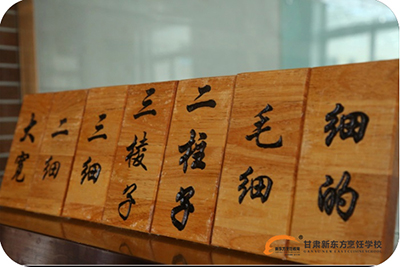 大宽
二细
三细
三棱子
二柱子
毛细
细的
甘肃新东方烹饪学校